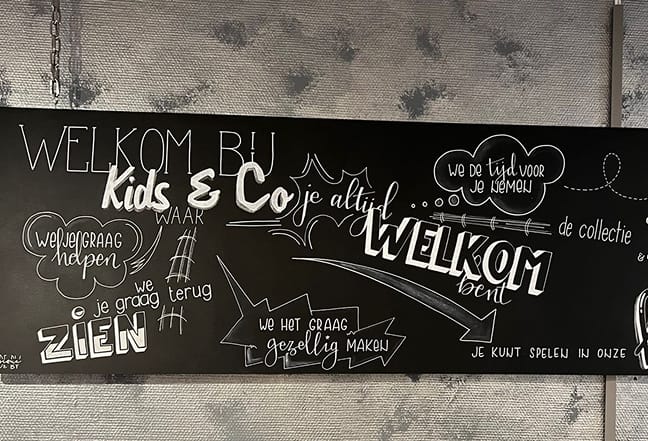 WELKOM BIJ
Kids & Co
WAAR
je altijd
WELKOM
bent
WE DE tijd VOOR
JE NEMEN
de collectie
&
WE JE GRAAG
helpen
we
je graag terug
ZIEN
WE HET GRAAG
gezellig MAKEN
JE KUNT SPELEN IN ONZE